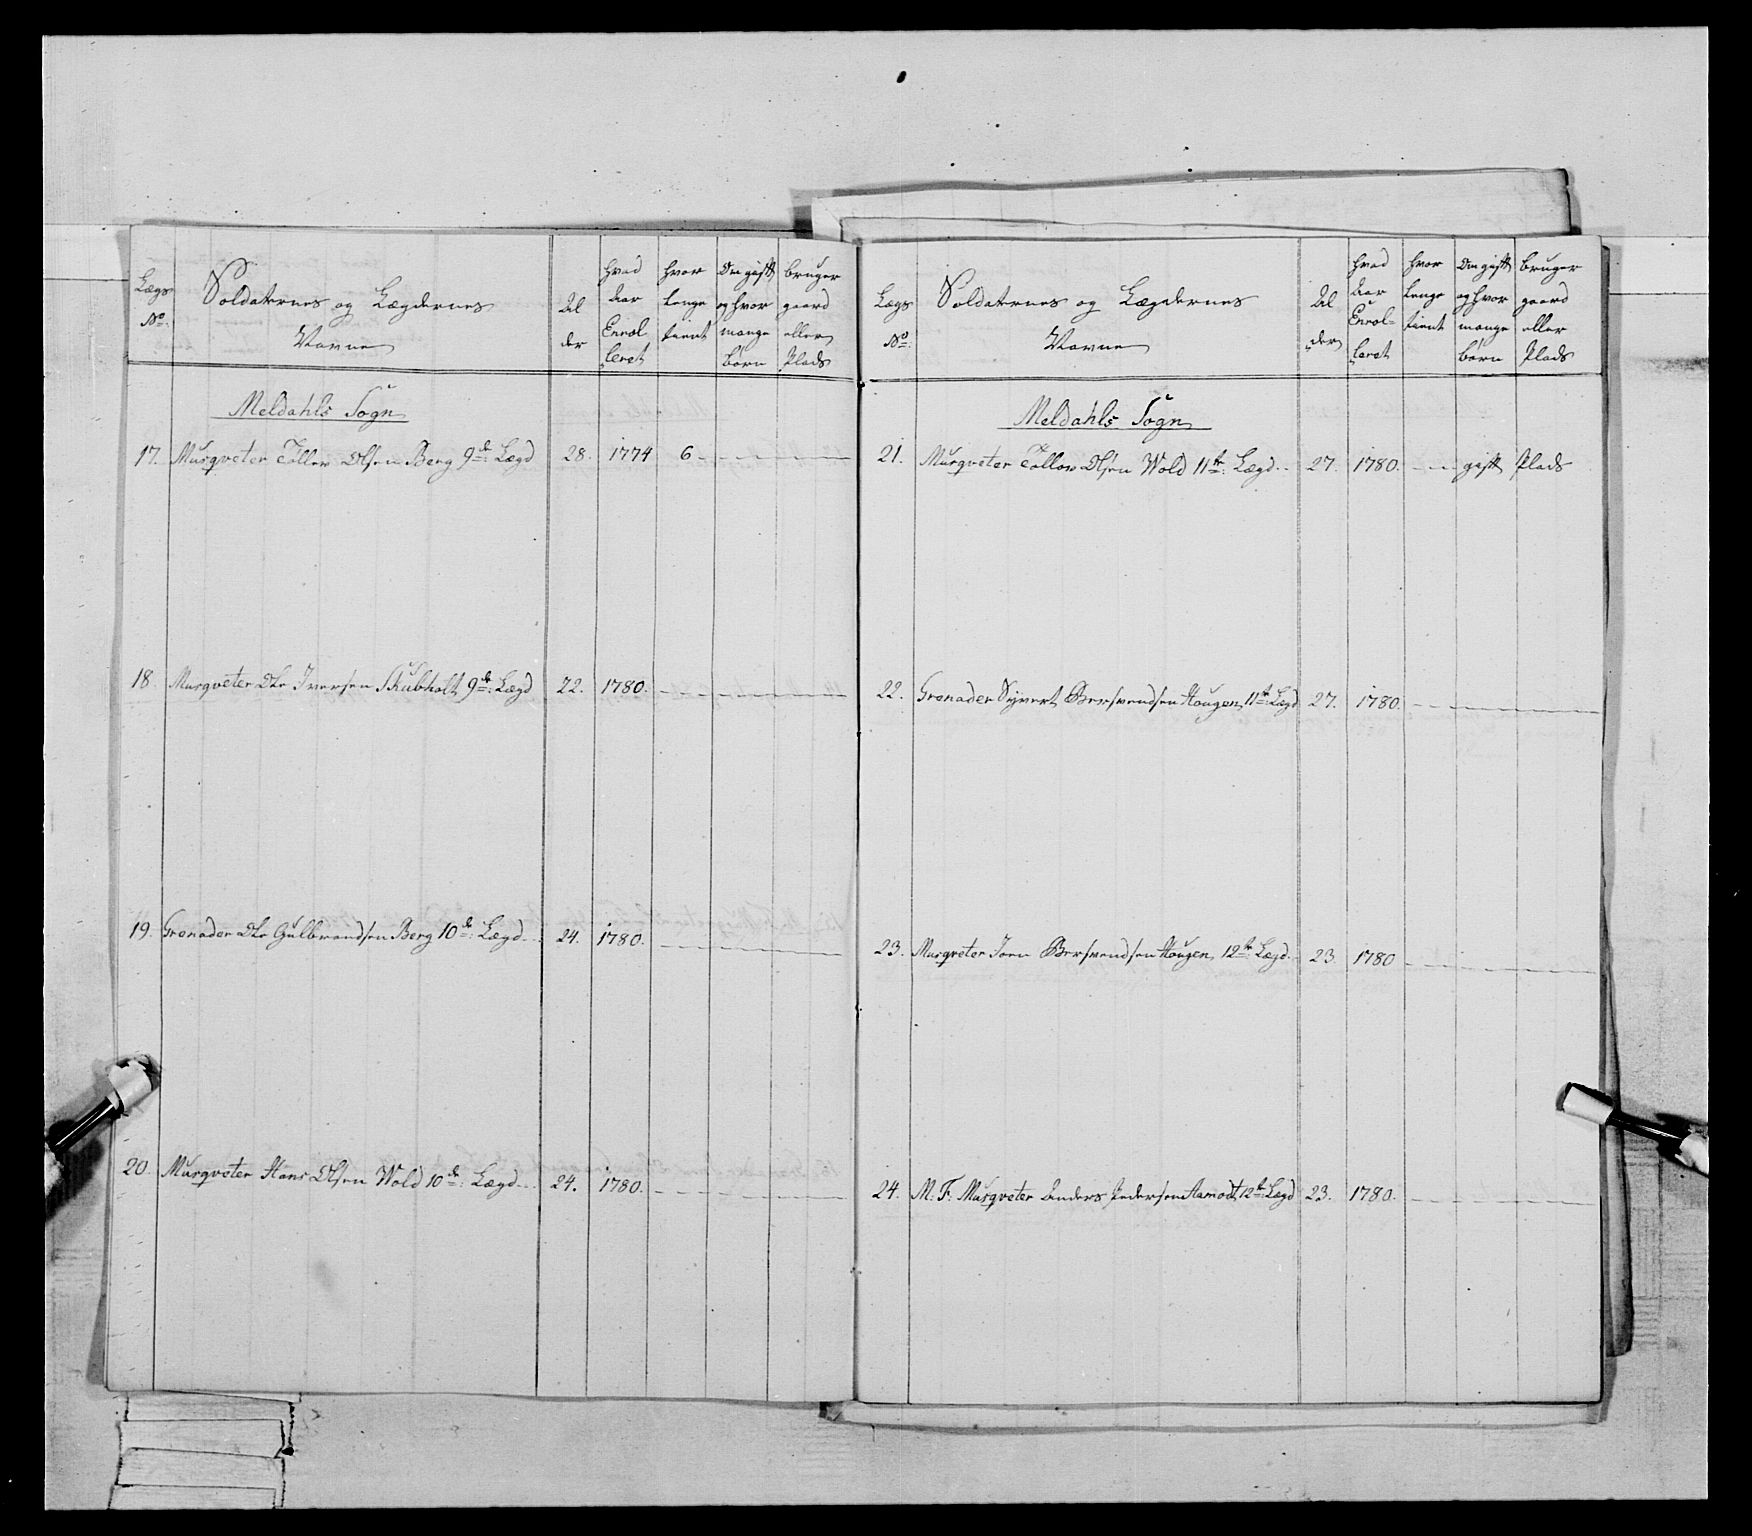 Lægs No: Soldaternes og Lægdernes Navne Alder hvad Aar Enrolleret hvor lenge tient Om gift og hvor mange børn bruger gaard eller Plads
Meldahls Sogn
17. Musqveter Tollev Olsen Berg 9de: Lægd 28. 1774 6 - - - -
18. Musqveter Ole Iversen Skubholt 9de: Lægd 22. 1780. - - - -
19. Grenader Ole Gulbrandsen Berg 10de: Lægd.. 24. 1780. - - - -
20. Musqveter Hans Olsen Wold 10de: Lægd... 24. 1780. - - - -
Lægs No: Soldaternes og Lægdernes Navne Alder hvad Aar Enrolleret hvor lenge tient Om gift og hvor mange børn bruger gaard eller Plads
Meldahls Sogn
21. Musqveter Tollov Olsen Wold 11te: Lægd.. 27. 1780. - - gift Plads
22. Grenader Syvert Bersvendsen Hougen 11te: Lægd 27. 1780. - - - -
23. Musqveter Joen Bersvendsen Hougen 12te: Lægd. 23. 1780 - - - -
24. M. F. Musqveter Anders Pedersen Aamodt 12te: Lægd 23. 1780. - - - -